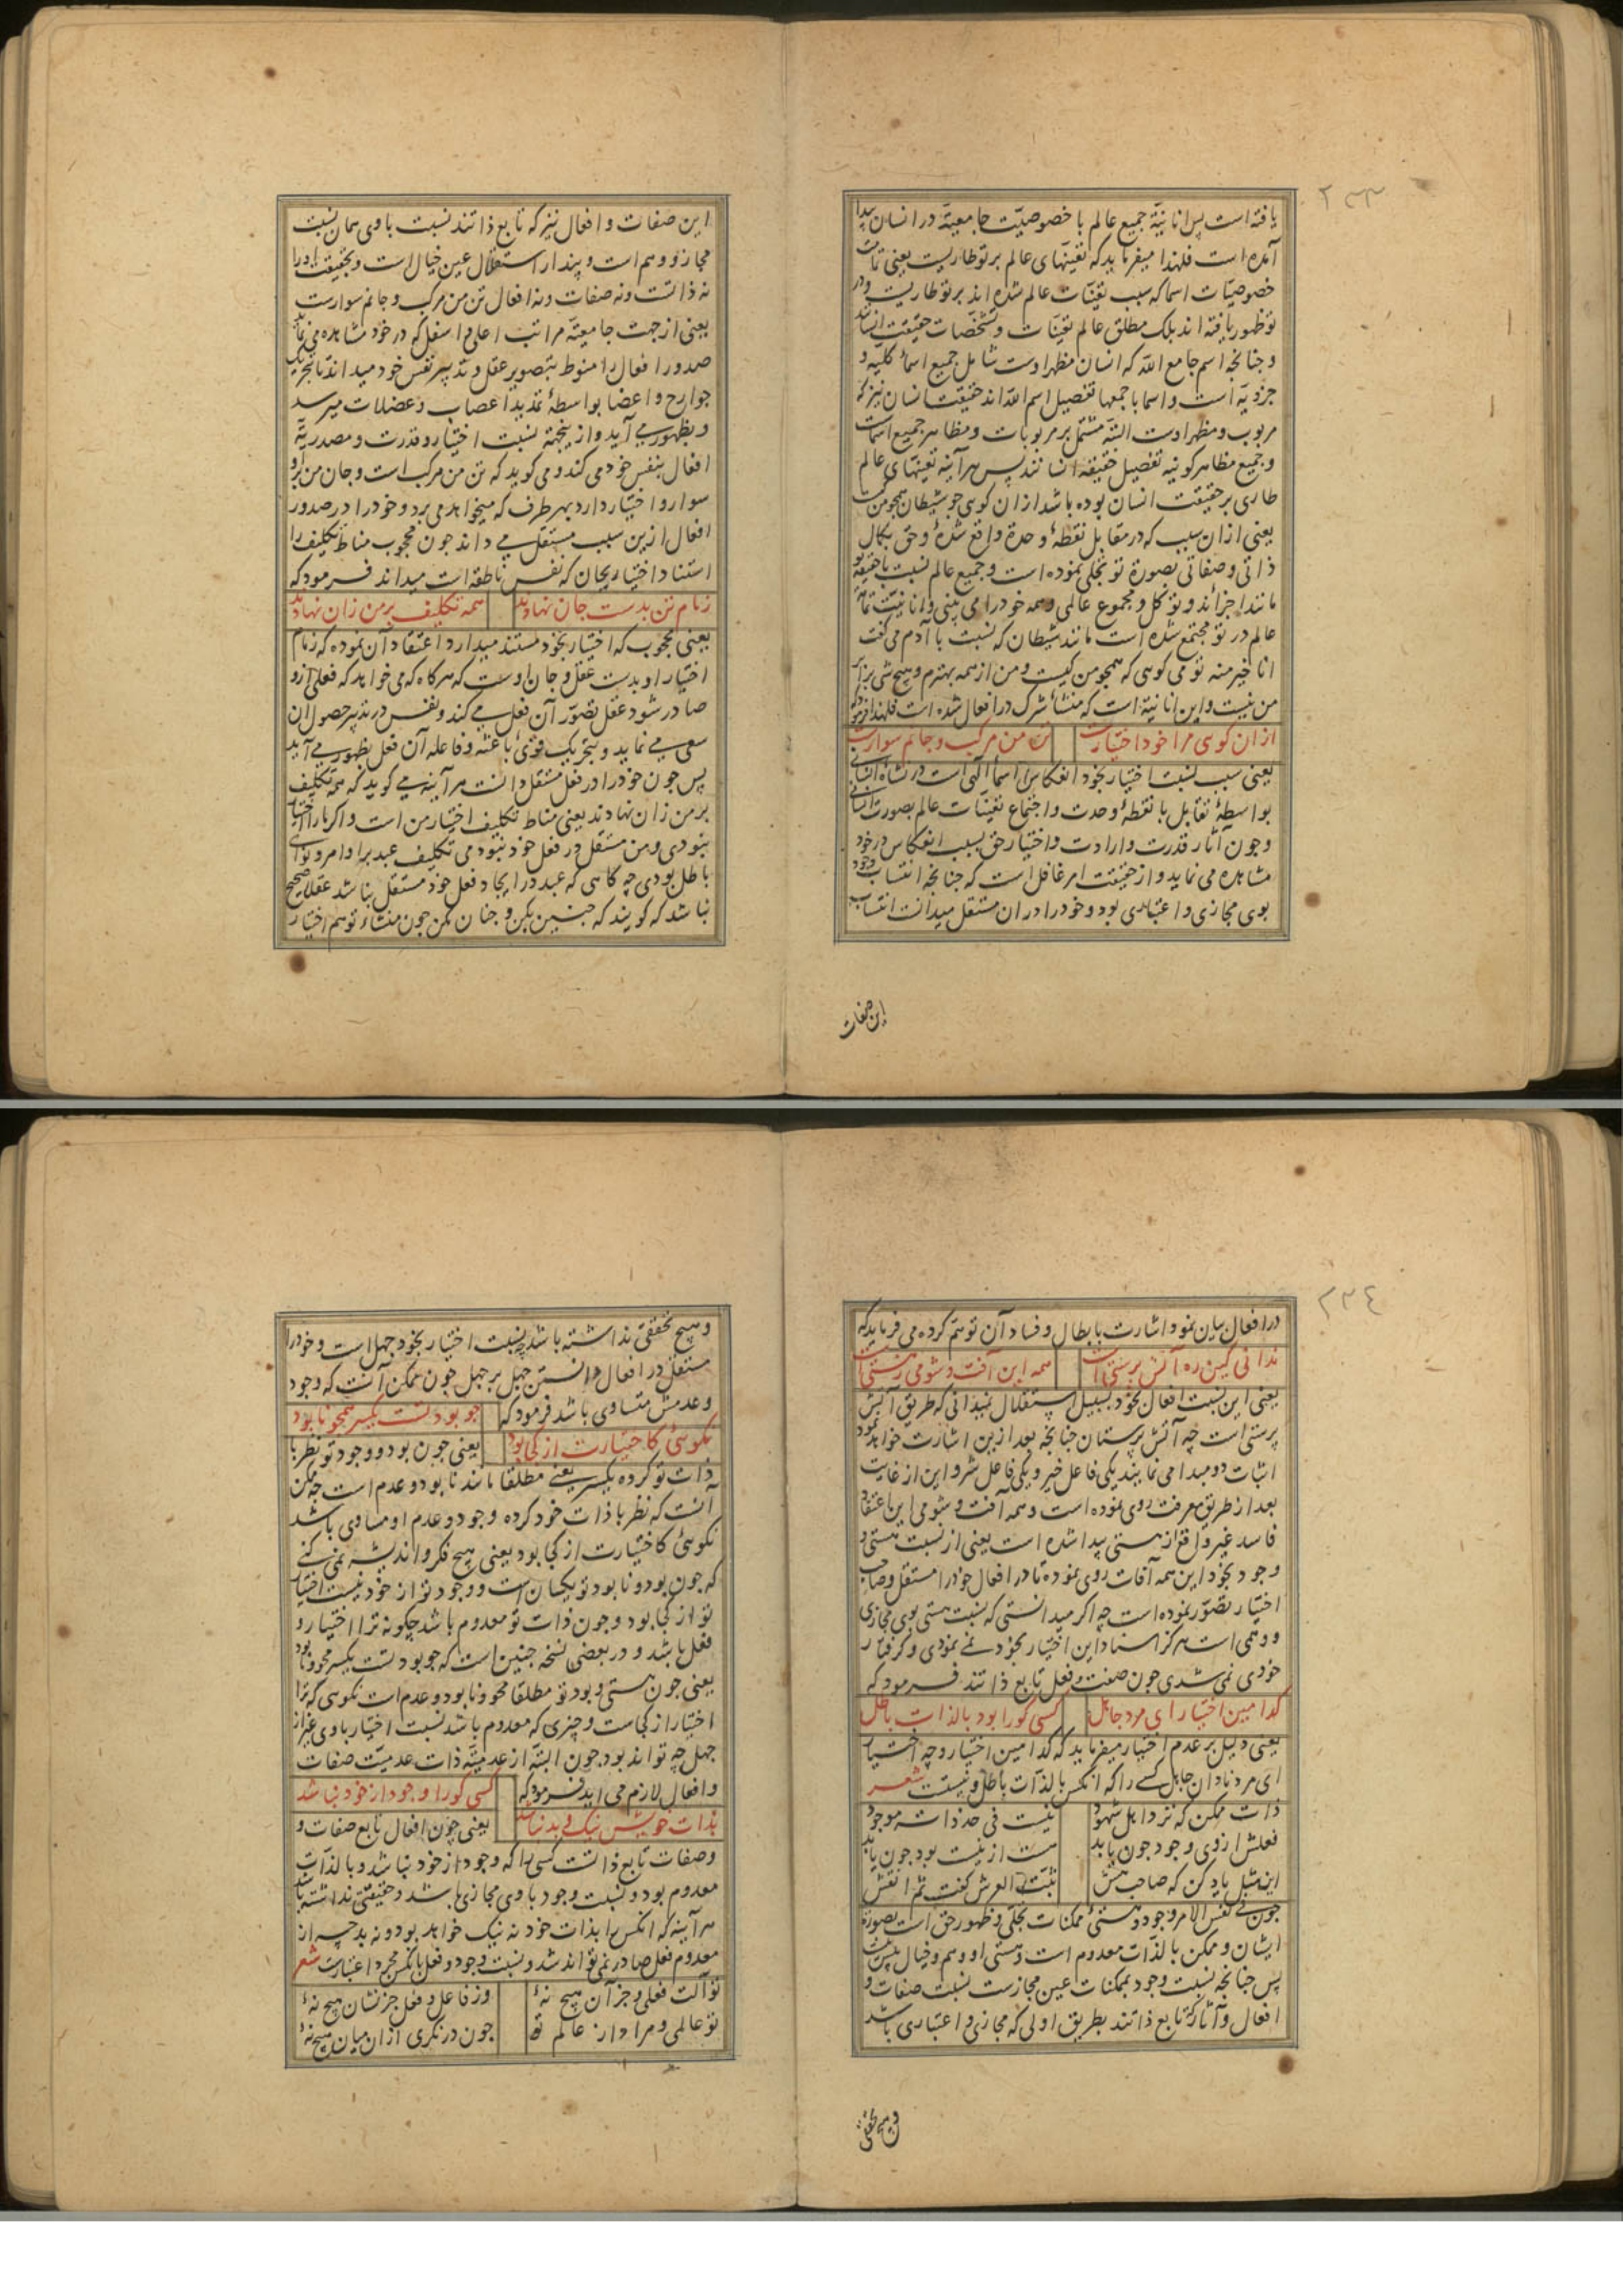 ٢٣٣
یافته است پس انانیّة جمیع عالم با خصوصیّت جامعیة در انسان پیدا
آمده است فلهذا میفرماید که تعینهای عالم بر تو طاریست یعنی تمامت
خصوصیّات اسما که سبب تعیّنات عالم شده اند بر تو طاریست و در
تو ظهور یافته اند بلک مطلق عالم تعیّنات و تشخّصات حقیقت انسانند
و جنانجه اسم جامع الله که انسان مظهر اوست شامل جمیع اسمآ کلیّه و
جزویّه است و اسما باجمعها تفصیل اسم الله اند حقیقت انسان نیز که
مربوب و مظهر اوست البتّه مشتمل بر مربوبات و مظاهر جمیع اسماست
و جمیع مظاهر کونیه تفصیل حقیقه انسانند پس هر آینه تعینهای عالم
طاری بر حقیقت انسان بوده باشد از ان کوی جو شیطان همجو من کیست
یعنی ازان سبب که در مقابل نقطهٔ وحدة واقع شدهٔ و حق بکمال
ذاتی و صفاتی بصورة تو تجلی نموده است و جمیع عالم نسبت با حقیقة تو
مانند اجزائند و تو کل و مجموع عالمی و همه خود را می بینی و انانیّت تمام
عالم در تو مجتمع شده است مانند شیطان که نسبت با آدم می گفت
انا خیر منه تو می کوی که همجو من کیست و من از همه بهترم و هیچ شی برابر
من نیست و این انانیة است که منشاء شرک در افعال شده است فلهذا فرمود که
ازان کوی مرا خود اختیارست تن من مرکب و جانم سوارست
یعنی سبب نسبت اختیار بخود انعکاس اسمآ الهی است در نشاة انسانی
بواسطهٔ تقابل با نقطهٔ وحدت و اجتماع تعیّنات عالم بصورت انسانی
و جون آثار قدرت و ارادت و اختیار حق بسبب انعکاس در خود
مشاهده می نماید و از حقیقت امر غافل است که جنانجه انتساب وجود
بوی مجازی و اعتباری بود و خود را دران مستقل میدانست انتساب
این صفات
این صفات و افعال نیز که تابع ذاتند نسبت باوی همان نسبت
مجاز و وهم است و پندار استقلال عین خیال است و بحقیقت او را
نه ذاتست و نه صفات و نه افعال تن من مرکب و جانم سوارست
یعنی از جهت جامعیّة مراتب اعلی و اسفل که در خود مشاهده می نماید
صدور افعال را منوط بتصویر عقل و تدبیر نفس خود میداند تا بتحریک
جوارح و اعضا بواسطهٔ تمدید اعصاب و عضلات میرسد
و بظهور می آید و از ینجهة نسبت اختیار و قدرت و مصدریّة
افعال بنفس خود می کند و می کوید که تن من مرکب است و جان من برو
سوار و اختیار دارد بهر طرف که میخواهد می برد و خود را در صدور
افعال ازین سبب مستقل می داند جون محجوب مناط تکلیف را
استناد اختیار بجان که نفس ناطقه است میداند فرمود که
زمام تن بدست جان نهادند همه تکلیف بر من زان نهادند
یعنی محجوب که اختیار بخود مستند میدارد اعتقاد آن نموده که زمام
اختیار او بدست عقل و جان اوست که هرکاه که می خواهد که فعلی ازو
صادر شود عقل تصوّر آن فعل می کند و نفس در تدبیر حصول ان
سعی می نماید و بتحریک قوی باعثه و فاعله آن فعل بظهور می آید
پس جون خود را در فعل مستقل دانست هر آینه می کوید که همه تکلیف
بر من زان نهادند یعنی مناط تکلیف اختیار من است و اکر مارا اختیار
نبودی و من مستقل در فعل خود نبودمی تکلیف عبد براوامر و نواهی
باطل بودی چه کاهی که عبد در ایجاد فعل خود مستقل نباشد عقلا صحیح
نباشد که کویند که جنین بکن و جنان مکن جون منشاء توهم اختیار
٢٣٤
در افعال بیان نمود اشارت بابطال و فساد آن توهم کرده می فرماید که
ندانی کین ره آتش پرستی است همه این آفت و شومی ز هستی است
یعنی این نسبت افعال بخود بسبیل استقلال نمیدانی که طریق آتش
پرستی است چه آتش پرستان جنانجه بعد ازین اشارت خواهد نمود
اثبات دو مبدا می نمایند یکی فاعل خیر و یکی فاعل شر و این از غایت
بعد از طریق معرفت روی نموده است و همه آفت و شومی این اعتقاد
فاسد غیر واقع از هستی پیدا شده است یعنی از نسبت هستی و
وجود بخود این همه آفات روی نموده تا در افعال خود را مستقل و صاحب
اختیار تصوّر نموده است چه اکر میدانستی که نسبت هستی بوی مجازی
و وهمی است هرکز اسناد این اختیار بخود نمی نمودی و کرفتار
خودی نمی شدی جون صفت و فعل تابع ذاتند فرمود که
کدامین اختیار ای مرد جاهل کسی کو را بود بالذات باطل
یعنی دلیل بر عدم اختیار میفرماید که کدامین اختیار و چه اختیار
ای مرد نادان جاهل کسی را که آنکس بالذّات باطل و نیست شعر
ذات ممکن که نزد اهل شهود نیست فی حد ذاته موجود
فعلش از روی وجود جون یابد هست از نیست بود جون یابد
این مثل یاد کن که صاحب هش ثبّت العرش کفت ثم انقش
جون فی نفس الامر وجود و هستی ممکنات تجلّی و ظهور حق است بصورة
ایشان و ممکن بالذّات معدوم است و هستی او وهم و خیال بیش نیست
پس جنانجه نسبت وجود بممکنات عین مجازست نسبت صفات و
افعال و آثار که تابع ذاتند بطریق اولی که مجازی و اعتباری باشد
و هیچ تحققی
و هیچ تحققی نداشته باشد چه نسبت اختیار بخود جهل است و خود را
مستقل در افعال دانستن جهل بر جهل جون ممکن آنست که وجود
و عدمش متساوی باشد فرمود که جو بود تست یکسر همجو نابود
نکوئی کاختیارت از کجا بود یعنی جون بود و وجود تو نظر با
ذات تو کرده یکسر یعنی مطلقا مانند نابود و عدم است چه ممکن
آنست که نظر با ذات خود کرده وجود و عدم او مساوی باشد
نکوئی کاختیارت از کجا بود یعنی هیچ فکر و اندیشه نمی کنی
که جون بود و نابود تو یکسان است و وجود تو از خود نیست اختیار
تو از کجا بود و جون ذات تو معدوم باشد چکونه ترا اختیار و
فعل باشد و در بعضی نسخه جنین است که جو بود تست یکسر محو و نابود
یعنی جون هستی و بود تو مطلقا محو و نابود و عدم است نکوی که ترا
اختیار از کجاست و چیزی که معدوم باشد نسبت اختیار باوی غیر از
جهل چه تواند بود جون البتّه از عدمیّة ذات عدمیّت صفات
و افعال لازم می اید فرمود که کسی کو را وجود از خود نباشد
بذات خویش نیک و بد نباشد یعنی چون افعال تابع صفات و
و صفات تابع ذاتست کسی را که وجود از خود نباشد و بالذّات
معدوم بود و نسبت وجود باوی مجازی باشد و حقیقتی نداشته باشد
هر آینه که آنکس را بذات خود نه نیک خواهد بود و نه بد چه از
معدوم فعل صادر نمی تواند شد و نسبت وجود و فعل بانکس مجرد اعتبارست شعر
تو آلت فعلی و جز آن هیچ نهٔ وز فاعل و فعل جز نشان هیچ نهٔ
تو عالمی و مراد از عالم تو جون در نکری ازان میان هیچ نهٔ